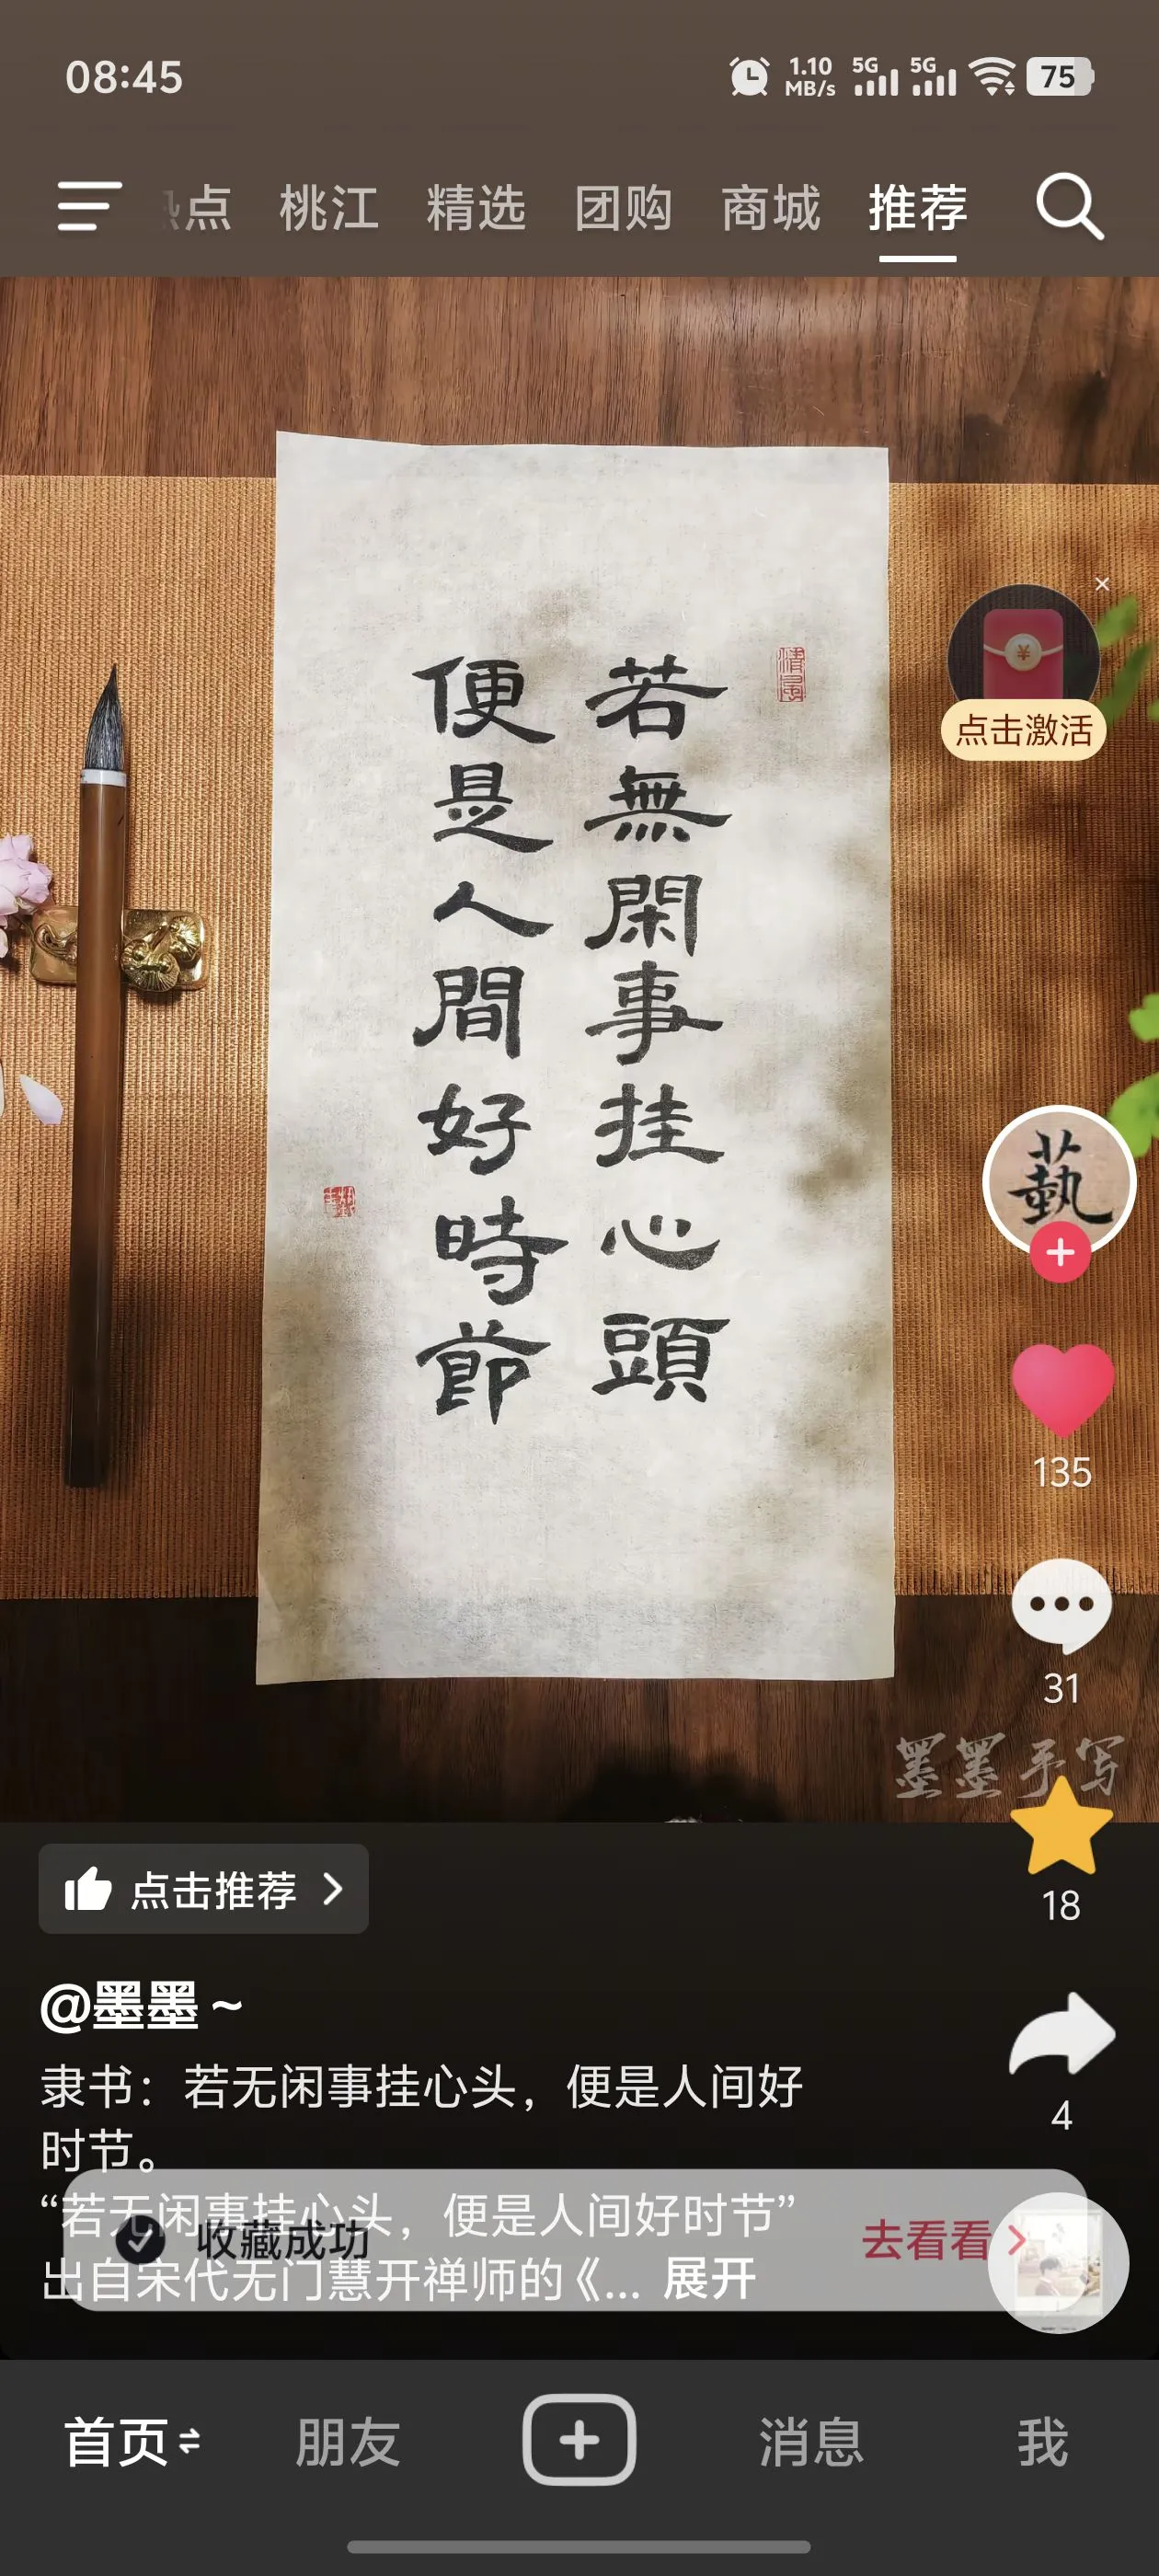 08:45
1.10
MB/s
5G
5G
75
点
桃江
精选
团购
商城
推荐
若無閑事挂心頭
便是人間好時節
点击激活
藝
135
31
墨墨手写
18
点击推荐
@墨墨~
隶书：若无闲事挂心头，便是人间好
时节。
“若无闲事挂心头，便是人间好时节”
出自宋代无门慧开禅师的《... 展开
4
收藏成功
去看看
首页
朋友
消息
我